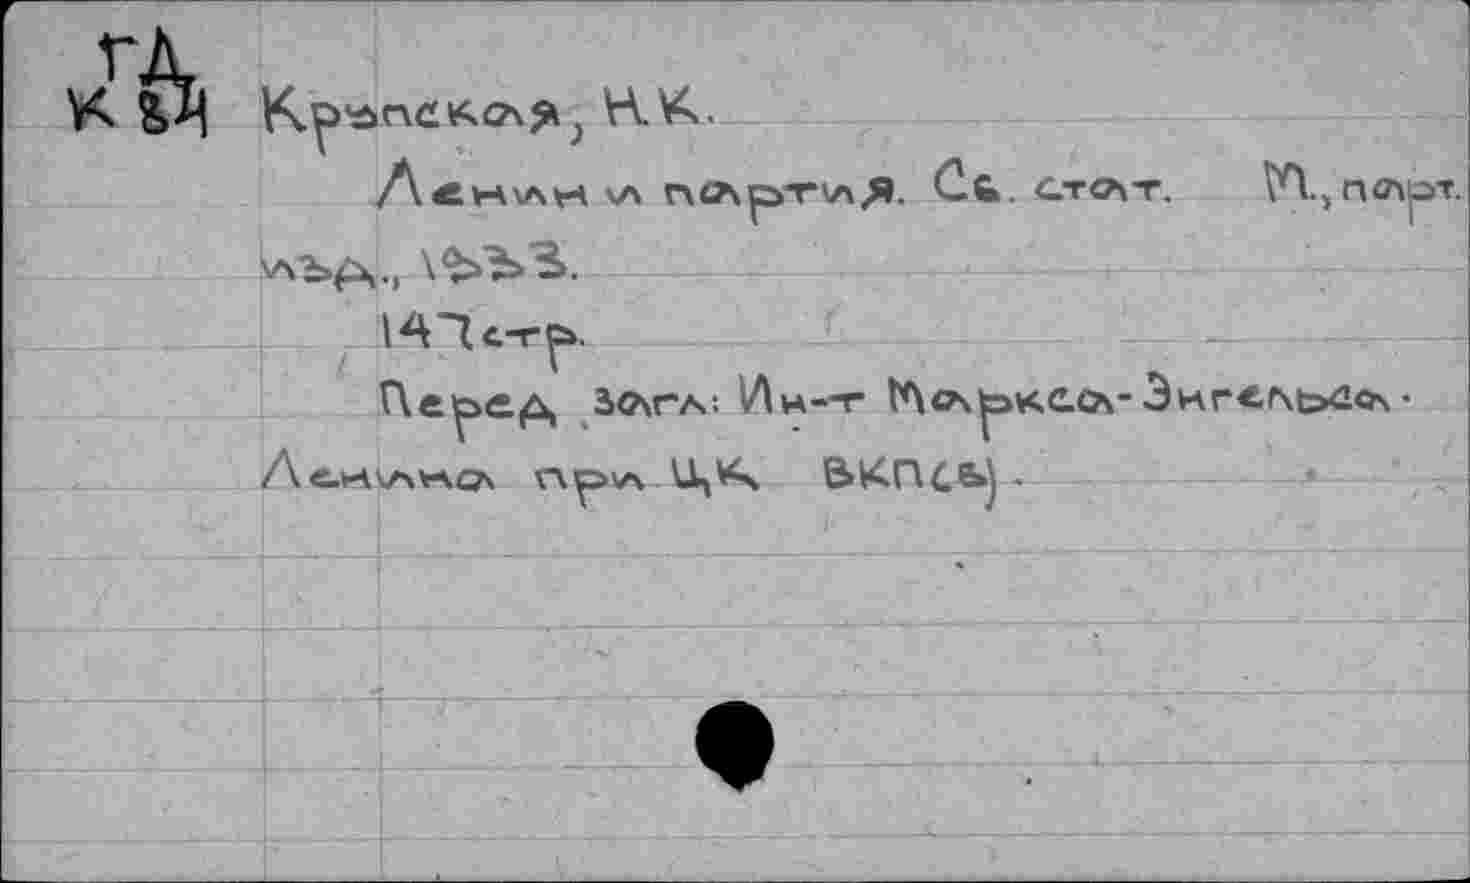 ГД
К 84 Крупская, Н.К.
Ленин и партия. Сб. стат. М., парт.
изд., 1933.
147 стр.
Перед загл: Ин-т Маркса-Энгельса-
Ленина при ЦК ВКП(б).